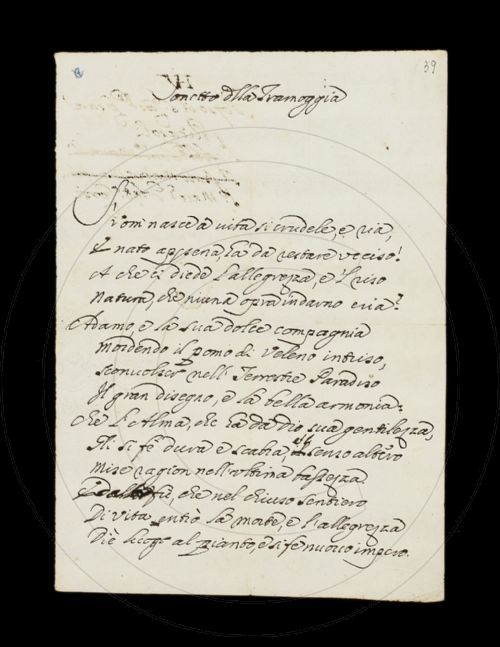 39
Sonetto della Tramoggia
Vom nasce à vita sì crudele, e ria,
E nato appena, hà da restare vcciso!
A che ci diede l'allegrezza, e 'l riso
Natura, che niuna opra indarno cria?
Adamo, e la sua dolce compagnia
Mordendo il pomo di veleno intriso,
Sconuolser nell' Terrestre Paradiso
Il gran disegno, e la bella armonia:
Che l'Alma, che hà da Dio sua gentilezza,
si fè dura e scabra, e 'l senso altero
Mise ragion nell'vltima bassezza.
che nel chiuso sentiero
Di Vita entrò la morte, e l'allegrezza
Diè luogo al pianto, e si fe nuouo impero.